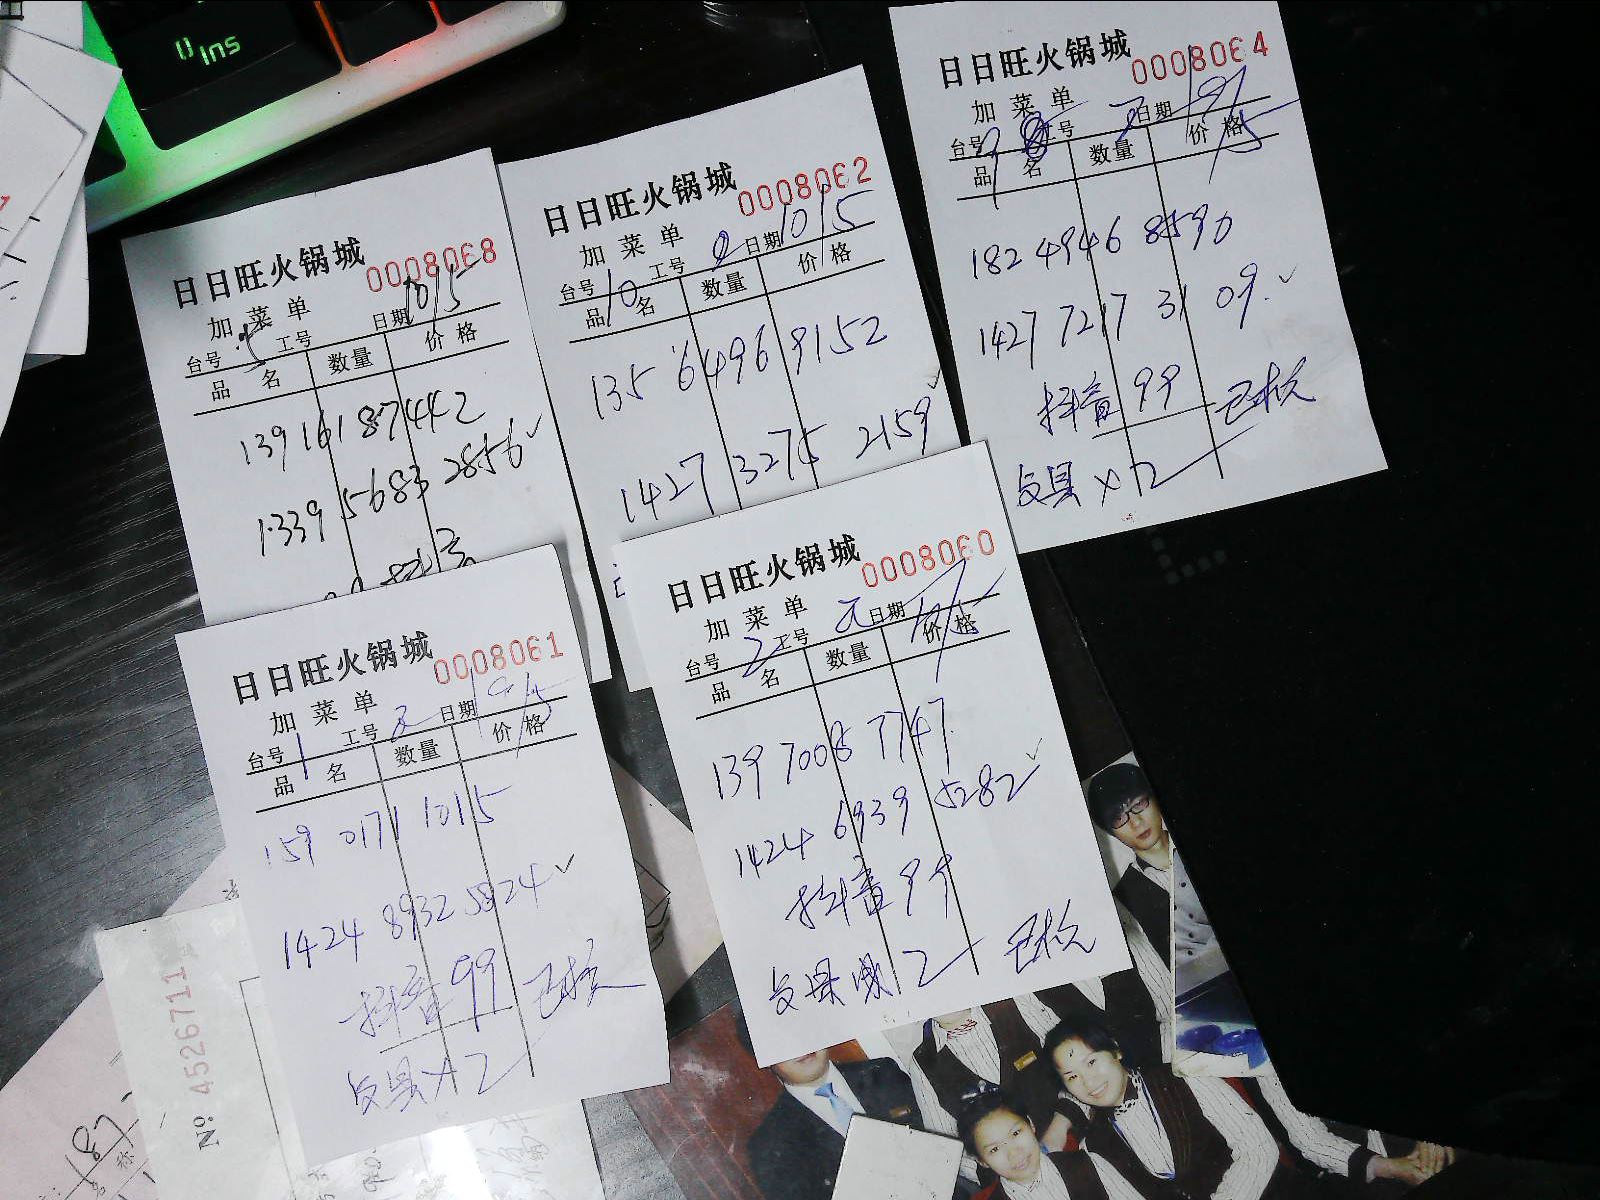 Ins
日日旺火锅城 0008068
加菜单
台号 工号 日期 10/5
品名 数量 价格
139 1618 7442
1339 5683 2856 ✓
日日旺火锅城 0008062
加菜单
台号 10 工号 日期 10/5
品名 数量 价格
135 6496 9152
1427 3275 2159 ✓
日日旺火锅城 0008064
加菜单
台号 工号 日期
品名 数量 价格
182 4946 8590
1427 7217 3109. ✓
抖音 99 已核
餐具 x 2
日日旺火锅城 0008061
加菜单
台号 1 工号 日期
品名 数量 价格
159 0171 1015
1424 8932 5824 ✓
抖音 99 已核
餐具 x 2
日日旺火锅城 0008060
加菜单
台号 2 工号 日期
品名 数量 价格
139 7008 7747
1424 6939 5282 ✓
抖音 99
2 已核
№ 4526711
187